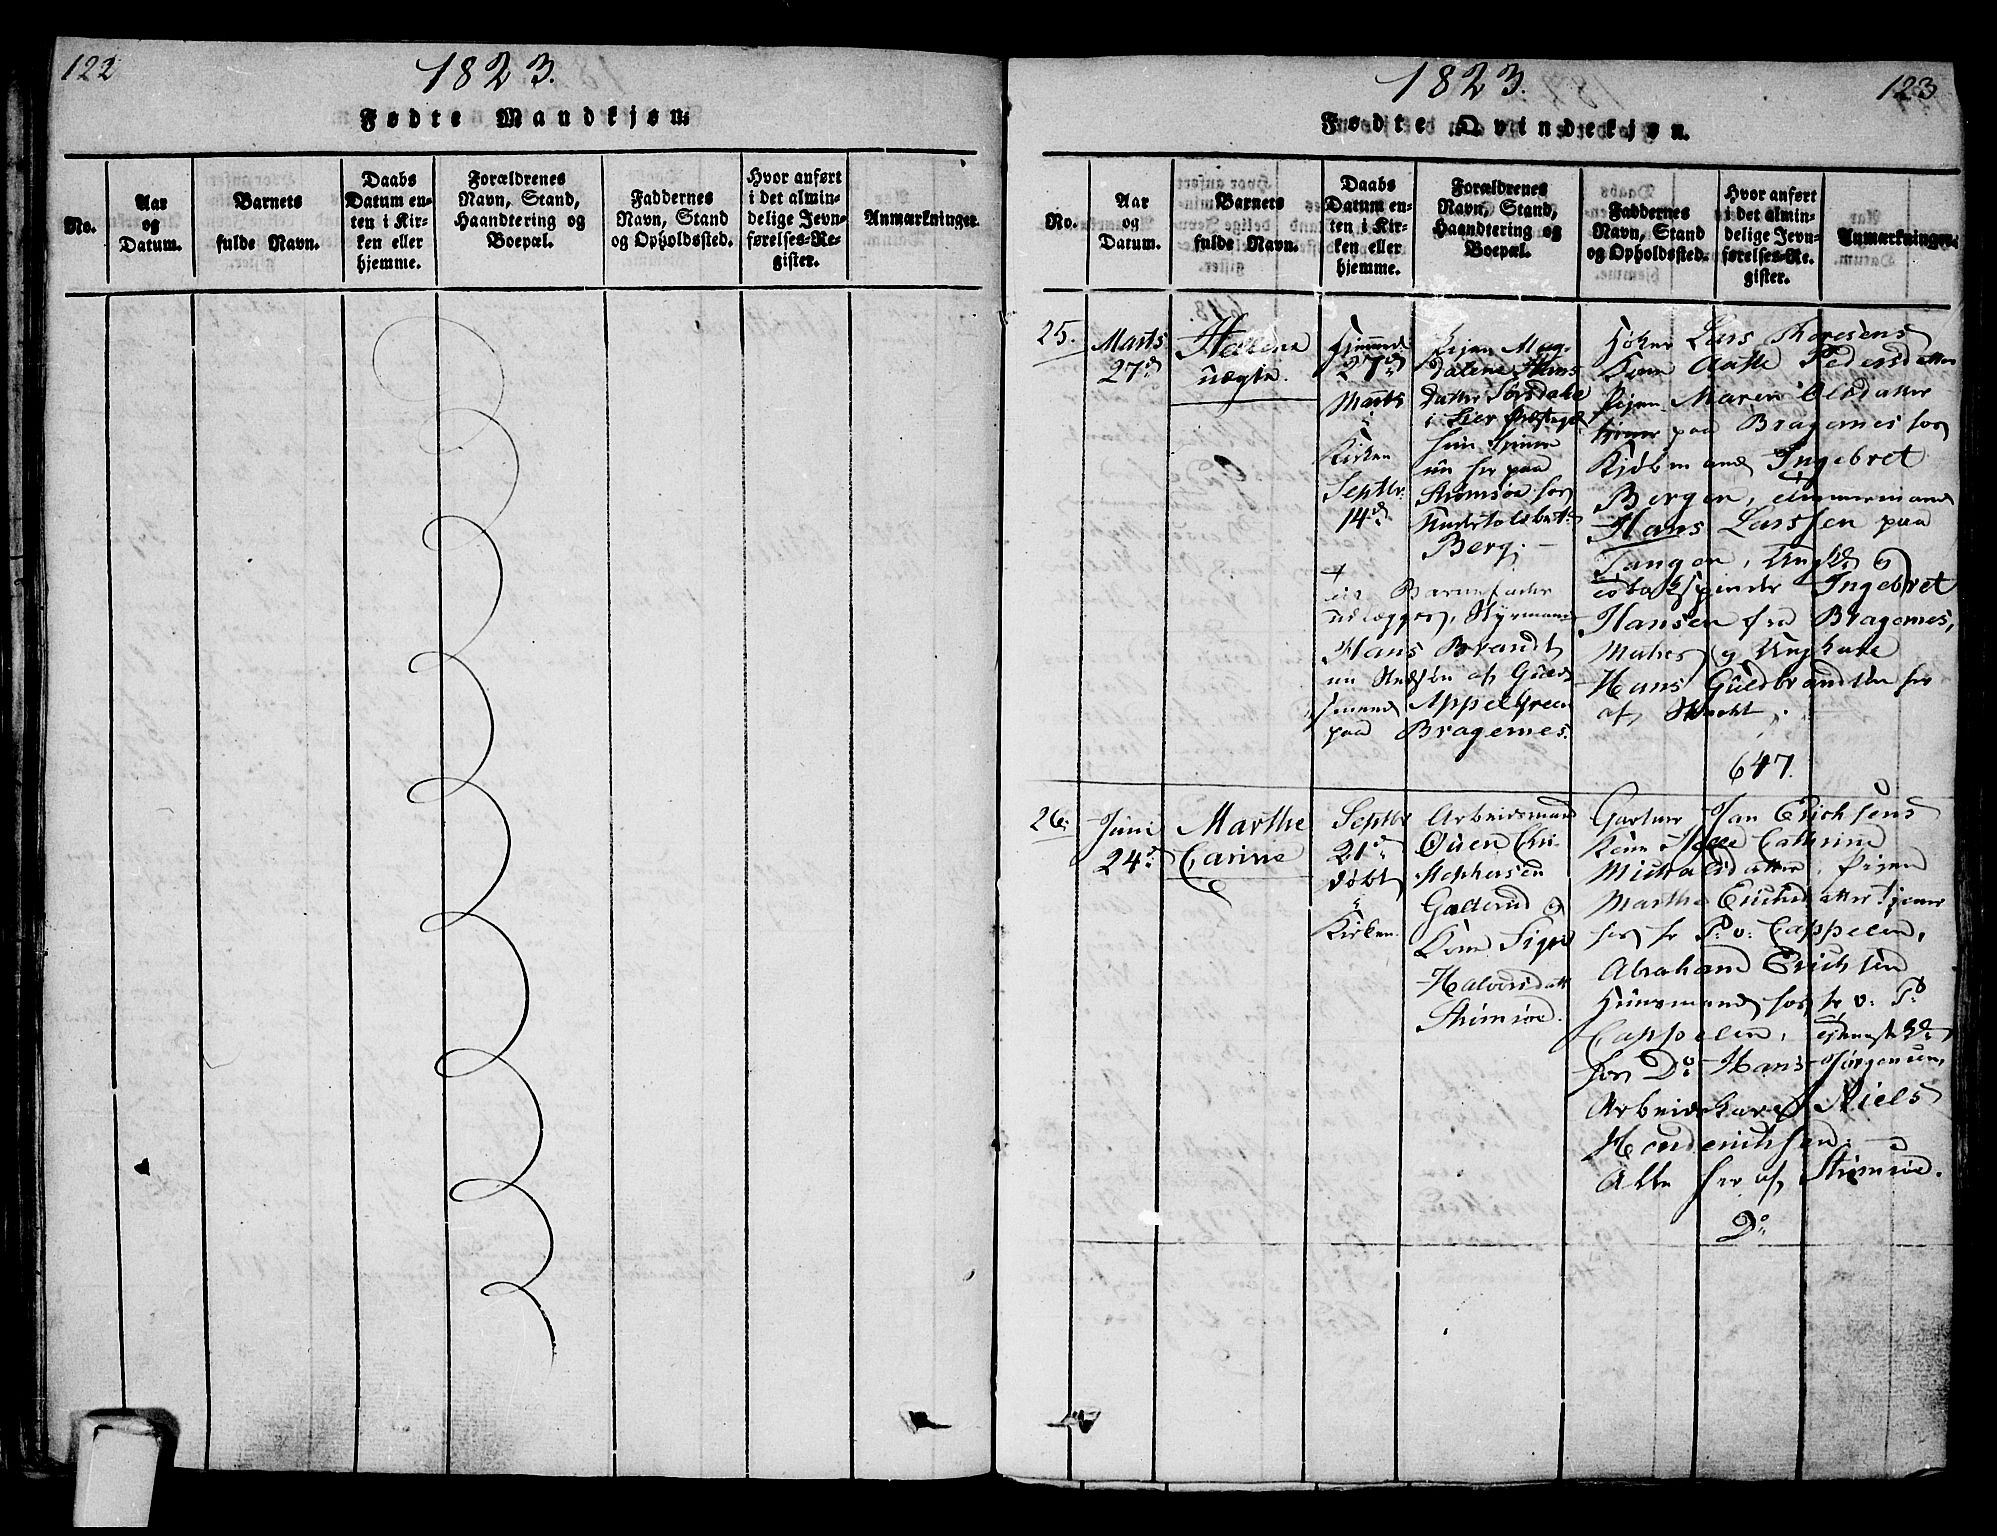 122
1823.
Fødte Mandkjøn.
No.
Aar
og
Datum.
Barnets
fulde Navn.
Daabs
Datum en-
ten i Kir-
ken eller
hjemme.
Forældrenes
Navn, Stand,
Haandtering og
Boepæl.
Faddernes
Navn, Stand
og Opholdssted.
Hvor anført
i det almin-
delige Jevn-
førelses-Re-
gister.
Anmærkninger.
1823.
123
Fødte Qvindekjøn.
No.
Aar
og
Datum.
Barnets
fulde Navn.
Daabs
Datum en-
ten i Kir-
ken eller
hjemme.
Forældrenes
Navn, Stand,
Haandtering og
Boepæl.
Faddernes
Navn, Stand
og Opholdssted.
Hvor anført
i det almin-
delige Jevn-
førelses-Re-
gister.
Anmærkninger.
25.
Marts
27d:
Hellene
uægte.
hjemmed
27d:
Marts
Kirken
Septbr:
14d:
Pigen Mag-
dalene Hans
datter
i Lier
paa
Strømsøe hos
Berg.
Barnefader
udlægges, Styrmand
Hans Brandt
en af Guld
smed Appelgreen
paa Bragernes.
Høker Lars Thoresens
Kone Aase Pedersdatter
Pigen Maren Olsdatter
paa Bragernes hos
Kjøbmand Ingebret
Bergen, Tømmermand
Hans Larssen paa
Tangen, Ungk: og
Tobakspinder Ingebret
Hansen fra Bragernes,
og Ungkarl
Hans Guldbrandsen her
af
647.
26.
Juni
24d:
Marthe
Carine
Septbr
21d:
døbt
i
Kirken.
Arbeidsmand
Ouen Chri-
stophersen
Gallerud og
Kone Sigri
Halvorsdatt
Strømsøe.
Gartner Jan Erichsens
Kone Helle Cathrine
Michalsdatter, Pigen
Marthe Erichsdatter tjener
hos hr P: v: Cappelen,
Abraham Erichsen
Huusmand hos hr v: P:
Cappelen,
hos Do Hans Jørgensen,
Arbeidskarl Niels
Alle her af Strømsøe.
Do